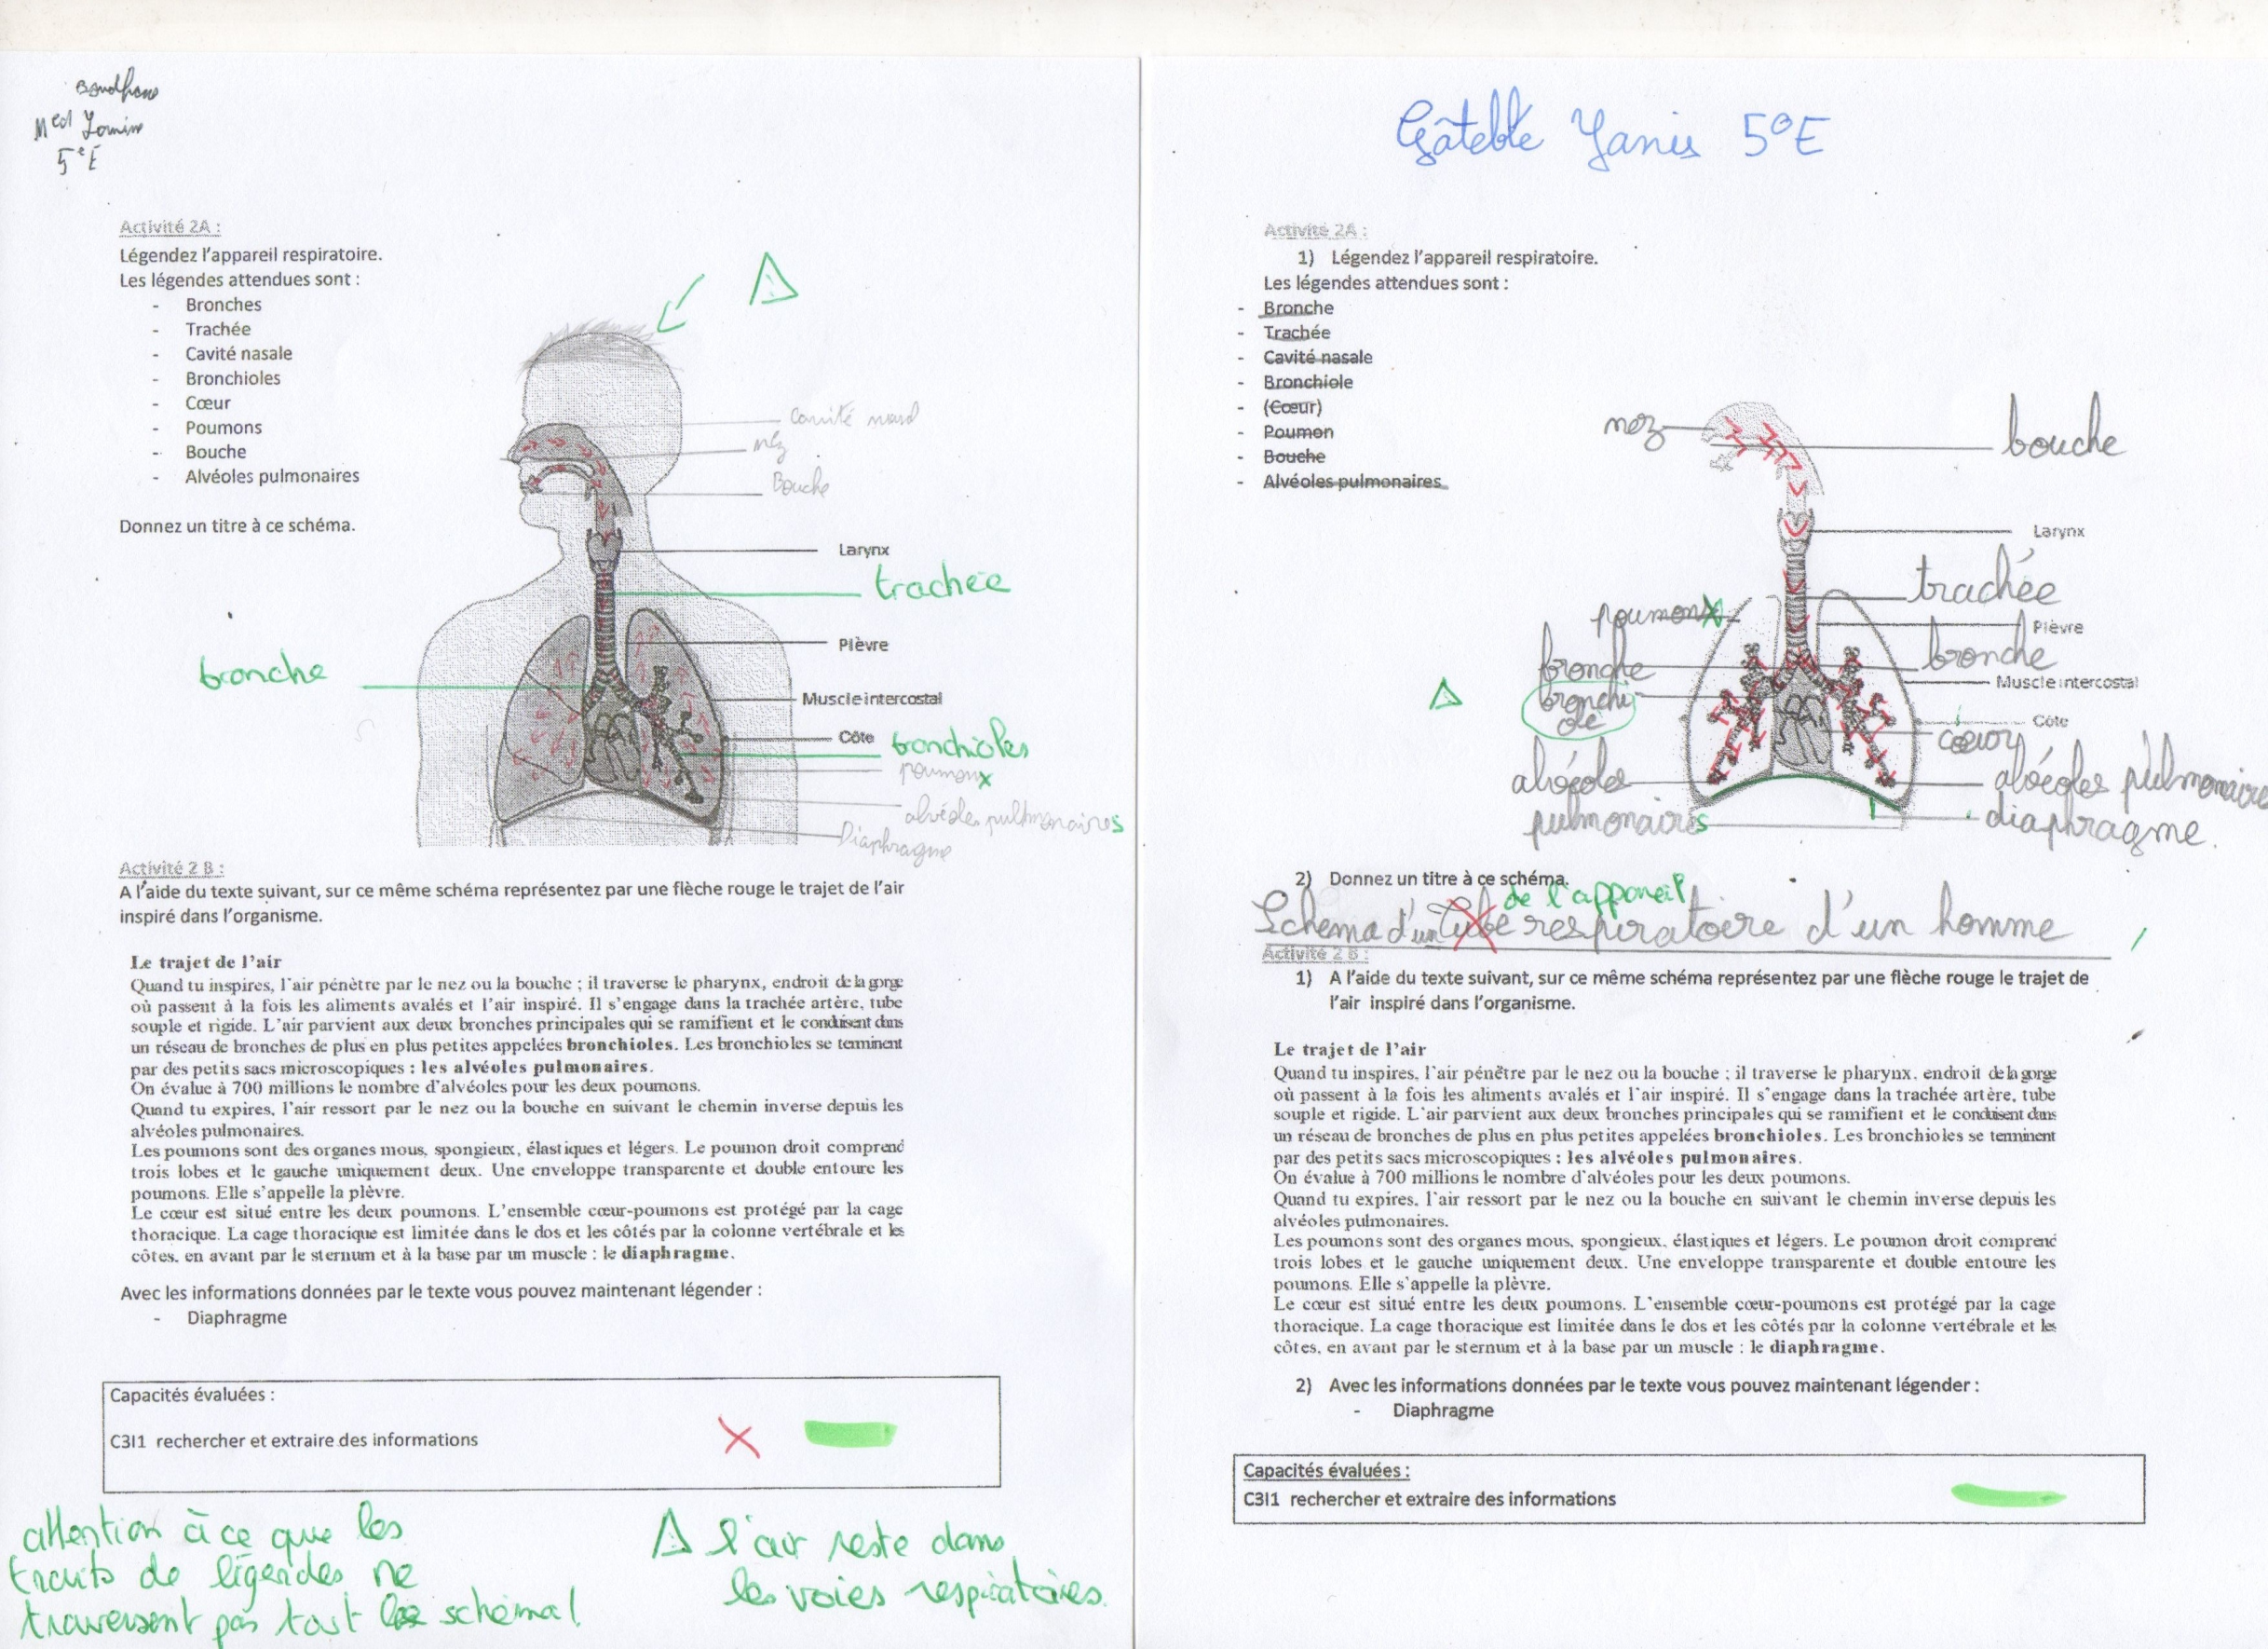 Med
5°E
Activité 2A :
Légendez l'appareil respiratoire.
Les légendes attendues sont :
- Bronches
- Trachée
- Cavité nasale
- Bronchioles
- Cœur
- Poumons
- Bouche
- Alvéoles pulmonaires
Donnez un titre à ce schéma.
Cavité
nez
Bouche
Larynx
trachée
Plèvre
bronche
Muscle intercostal
Côte
bronchioles
poumon
alvéoles pulmonaires
Diaphragme
Activité 2 B :
A l'aide du texte suivant, sur ce même schéma représentez par une flèche rouge le trajet de l'air
inspiré dans l'organisme.
Le trajet de l'air
Quand tu inspires, l'air pénètre par le nez ou la bouche ; il traverse le pharynx, endroit de la gorge
où passent à la fois les aliments avalés et l'air inspiré. Il s'engage dans la trachée artère, tube
souple et rigide. L'air parvient aux deux bronches principales qui se ramifient et le conduisent dans
un réseau de bronches de plus en plus petites appelées bronchioles. Les bronchioles se terminent
par des petits sacs microscopiques : les alvéoles pulmonaires.
On évalue à 700 millions le nombre d'alvéoles pour les deux poumons.
Quand tu expires, l'air ressort par le nez ou la bouche en suivant le chemin inverse depuis les
alvéoles pulmonaires.
Les poumons sont des organes mous, spongieux, élastiques et légers. Le poumon droit comprend
trois lobes et le gauche uniquement deux. Une enveloppe transparente et double entoure les
poumons. Elle s'appelle la plèvre.
Le cœur est situé entre les deux poumons. L'ensemble cœur-poumons est protégé par la cage
thoracique. La cage thoracique est limitée dans le dos et les côtés par la colonne vertébrale et les
côtes, en avant par le sternum et à la base par un muscle : le diaphragme.
Avec les informations données par le texte vous pouvez maintenant légender :
- Diaphragme
Capacités évaluées :
C3I1 rechercher et extraire des informations
attention à ce que les
traits de légendes ne
traversent pas tout le schéma !
l'air reste dans
les voies respiratoires.
Gâteblé Yanis 5°E
Activité 2A :
1) Légendez l'appareil respiratoire.
Les légendes attendues sont :
- Bronche
- Trachée
- Cavité nasale
- Bronchiole
- (Cœur)
- Poumon
- Bouche
- Alvéoles pulmonaires
nez
bouche
Larynx
trachée
poumon
Plèvre
bronche
bronche
Muscle intercostal
bronchi
ole
Côte
cœur
alvéoles
pulmonaires
alvéoles pulmonaire
diaphragme.
2) Donnez un titre à ce schéma.
de l'appareil
Schema d'un tube respiratoire d'un homme
Activité 2 B :
1) A l'aide du texte suivant, sur ce même schéma représentez par une flèche rouge le trajet de
l'air inspiré dans l'organisme.
Le trajet de l'air
Quand tu inspires, l'air pénètre par le nez ou la bouche ; il traverse le pharynx, endroit de la gorge
où passent à la fois les aliments avalés et l'air inspiré. Il s'engage dans la trachée artère, tube
souple et rigide. L'air parvient aux deux bronches principales qui se ramifient et le conduisent dans
un réseau de bronches de plus en plus petites appelées bronchioles. Les bronchioles se terminent
par des petits sacs microscopiques : les alvéoles pulmonaires.
On évalue à 700 millions le nombre d'alvéoles pour les deux poumons.
Quand tu expires, l'air ressort par le nez ou la bouche en suivant le chemin inverse depuis les
alvéoles pulmonaires.
Les poumons sont des organes mous, spongieux, élastiques et légers. Le poumon droit comprend
trois lobes et le gauche uniquement deux. Une enveloppe transparente et double entoure les
poumons. Elle s'appelle la plèvre.
Le cœur est situé entre les deux poumons. L'ensemble cœur-poumons est protégé par la cage
thoracique. La cage thoracique est limitée dans le dos et les côtés par la colonne vertébrale et les
côtes, en avant par le sternum et à la base par un muscle : le diaphragme.
2) Avec les informations données par le texte vous pouvez maintenant légender :
- Diaphragme
Capacités évaluées :
C3I1 rechercher et extraire des informations